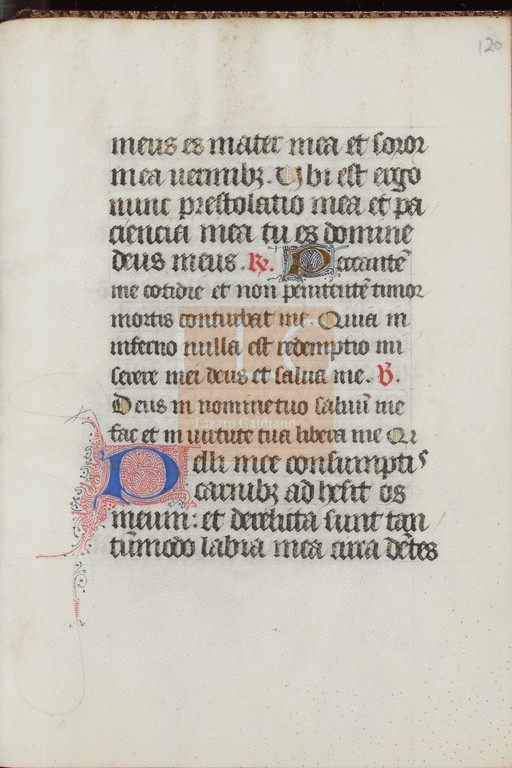 120
meus es mater mea et soror
mea uermibꝫ. Vbi est ergo
nunc prestolatio mea et pa
ciencia mea tu es domine
deus meus. ℟. Peccantē
me cotidie et non penitentē timor
mortis conturbat me. Quia in
inferno nulla est redemptio mi
serere mei deus et salua me. ℣.
Deus in nomine tuo saluū me
fac et in uirtute tua libera me Qr
Pelli mee consumptis
carnibꝫ adhesit os
meum: et derelicta sunt tan
tūmodo labia mea circa dētes
Lázaro Galdiano